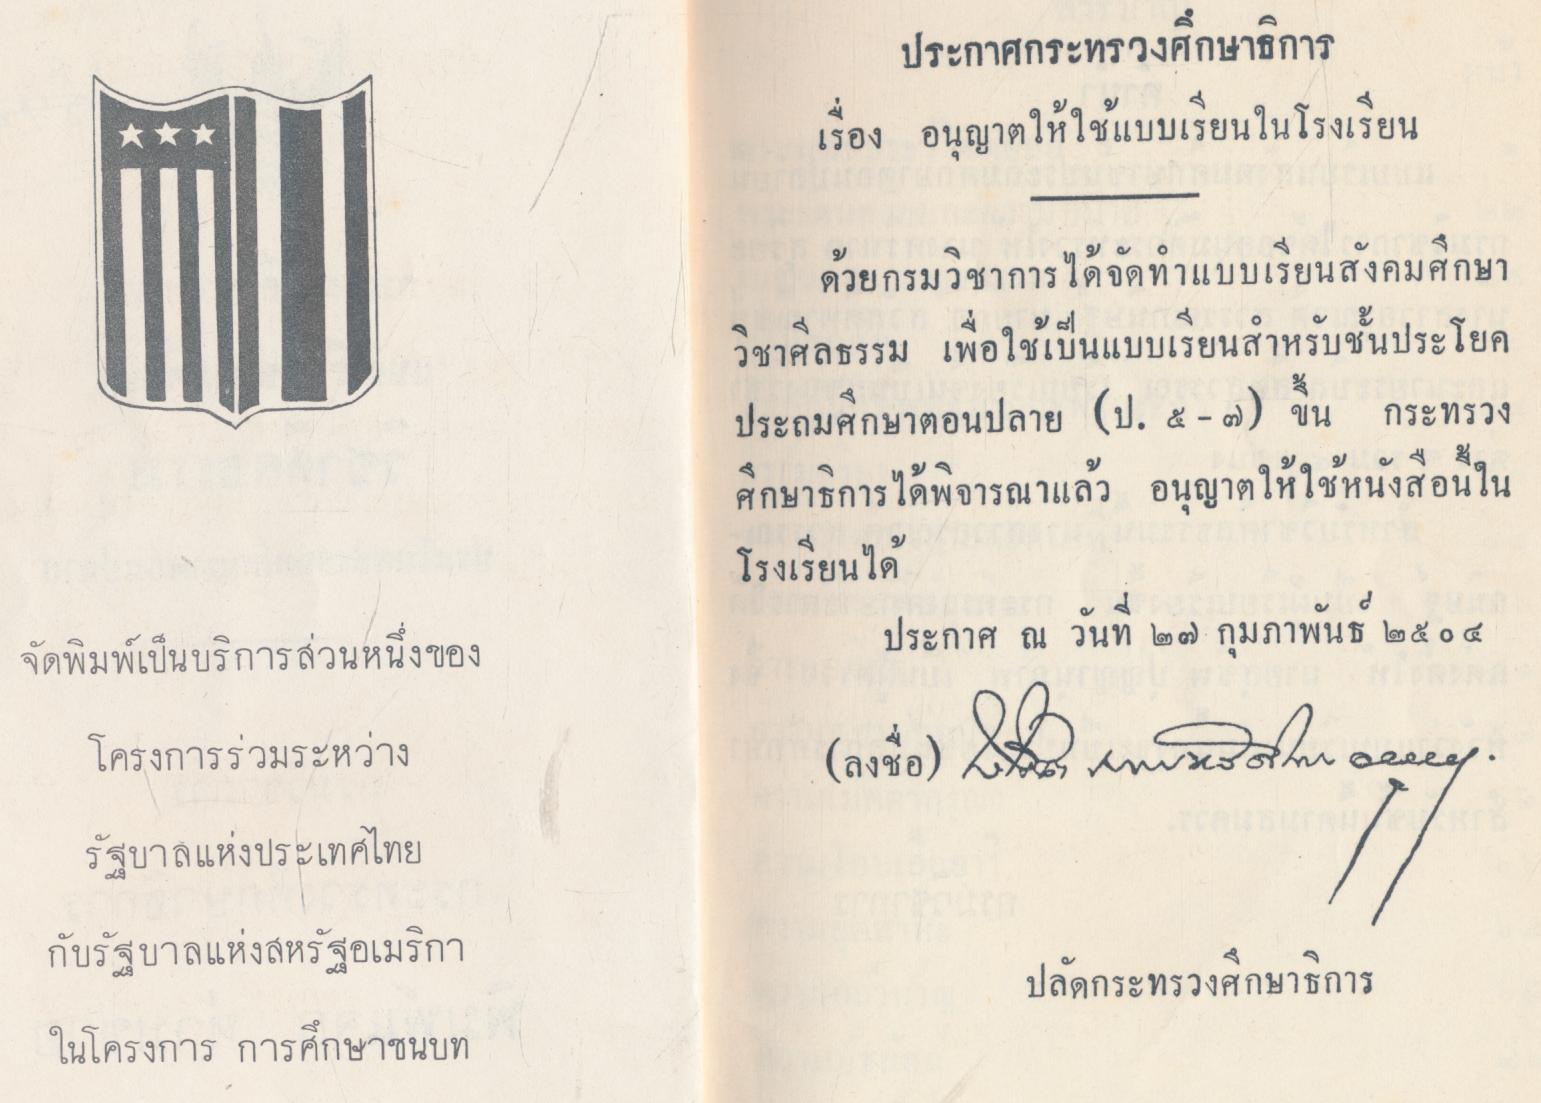 จัดพิมพ์เป็นบริการส่วนหนึ่งของ
โครงการร่วมระหว่าง
รัฐบาลแห่งประเทศไทย
กับรัฐบาลแห่งสหรัฐอเมริกา
ในโครงการ การศึกษาชนบท
ประกาศกระทรวงศึกษาธิการ
เรื่อง อนุญาตให้ใช้แบบเรียนในโรงเรียน
ด้วยกรมวิชาการได้จัดทำแบบเรียนสังคมศึกษา
วิชาศีลธรรม เพื่อใช้เป็นแบบเรียนสำหรับชั้นประโยค
ประถมศึกษาตอนปลาย (ป. ๕ - ๗) ขึ้น กระทรวง
ศึกษาธิการได้พิจารณาแล้ว อนุญาตให้ใช้หนังสือนี้ใน
โรงเรียนได้
ประกาศ ณ วันที่ ๒๗ กุมภาพันธ์ ๒๕๐๔
(ลงชื่อ)
ปลัดกระทรวงศึกษาธิการ